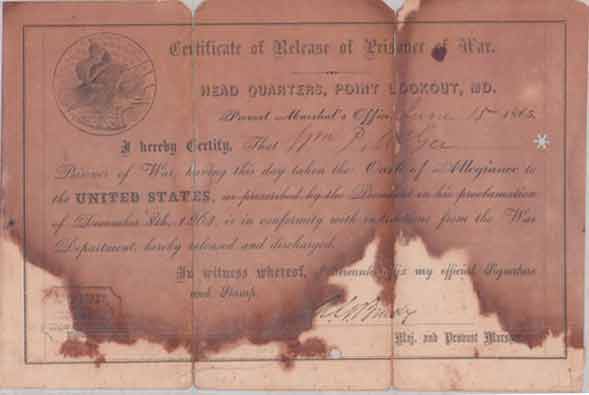 Certificate of Release of Prisoner of War.
HEAD QUARTERS, POINT LOOKOUT, MD.
Provost Marshal's Office, June 15 1865.
I hereby Certify, That Wm P.
Prisoner of War, having this day taken the Oath of Allegiance to
the UNITED STATES, as prescribed by the President in his proclamation
of December 8th, 1863, is in conformity with instructions from the War
Department, hereby released and discharged.
In witness whereof, I hereunto affix my official Signature
and Stamp.
Brady
Maj. and Provost Marshal